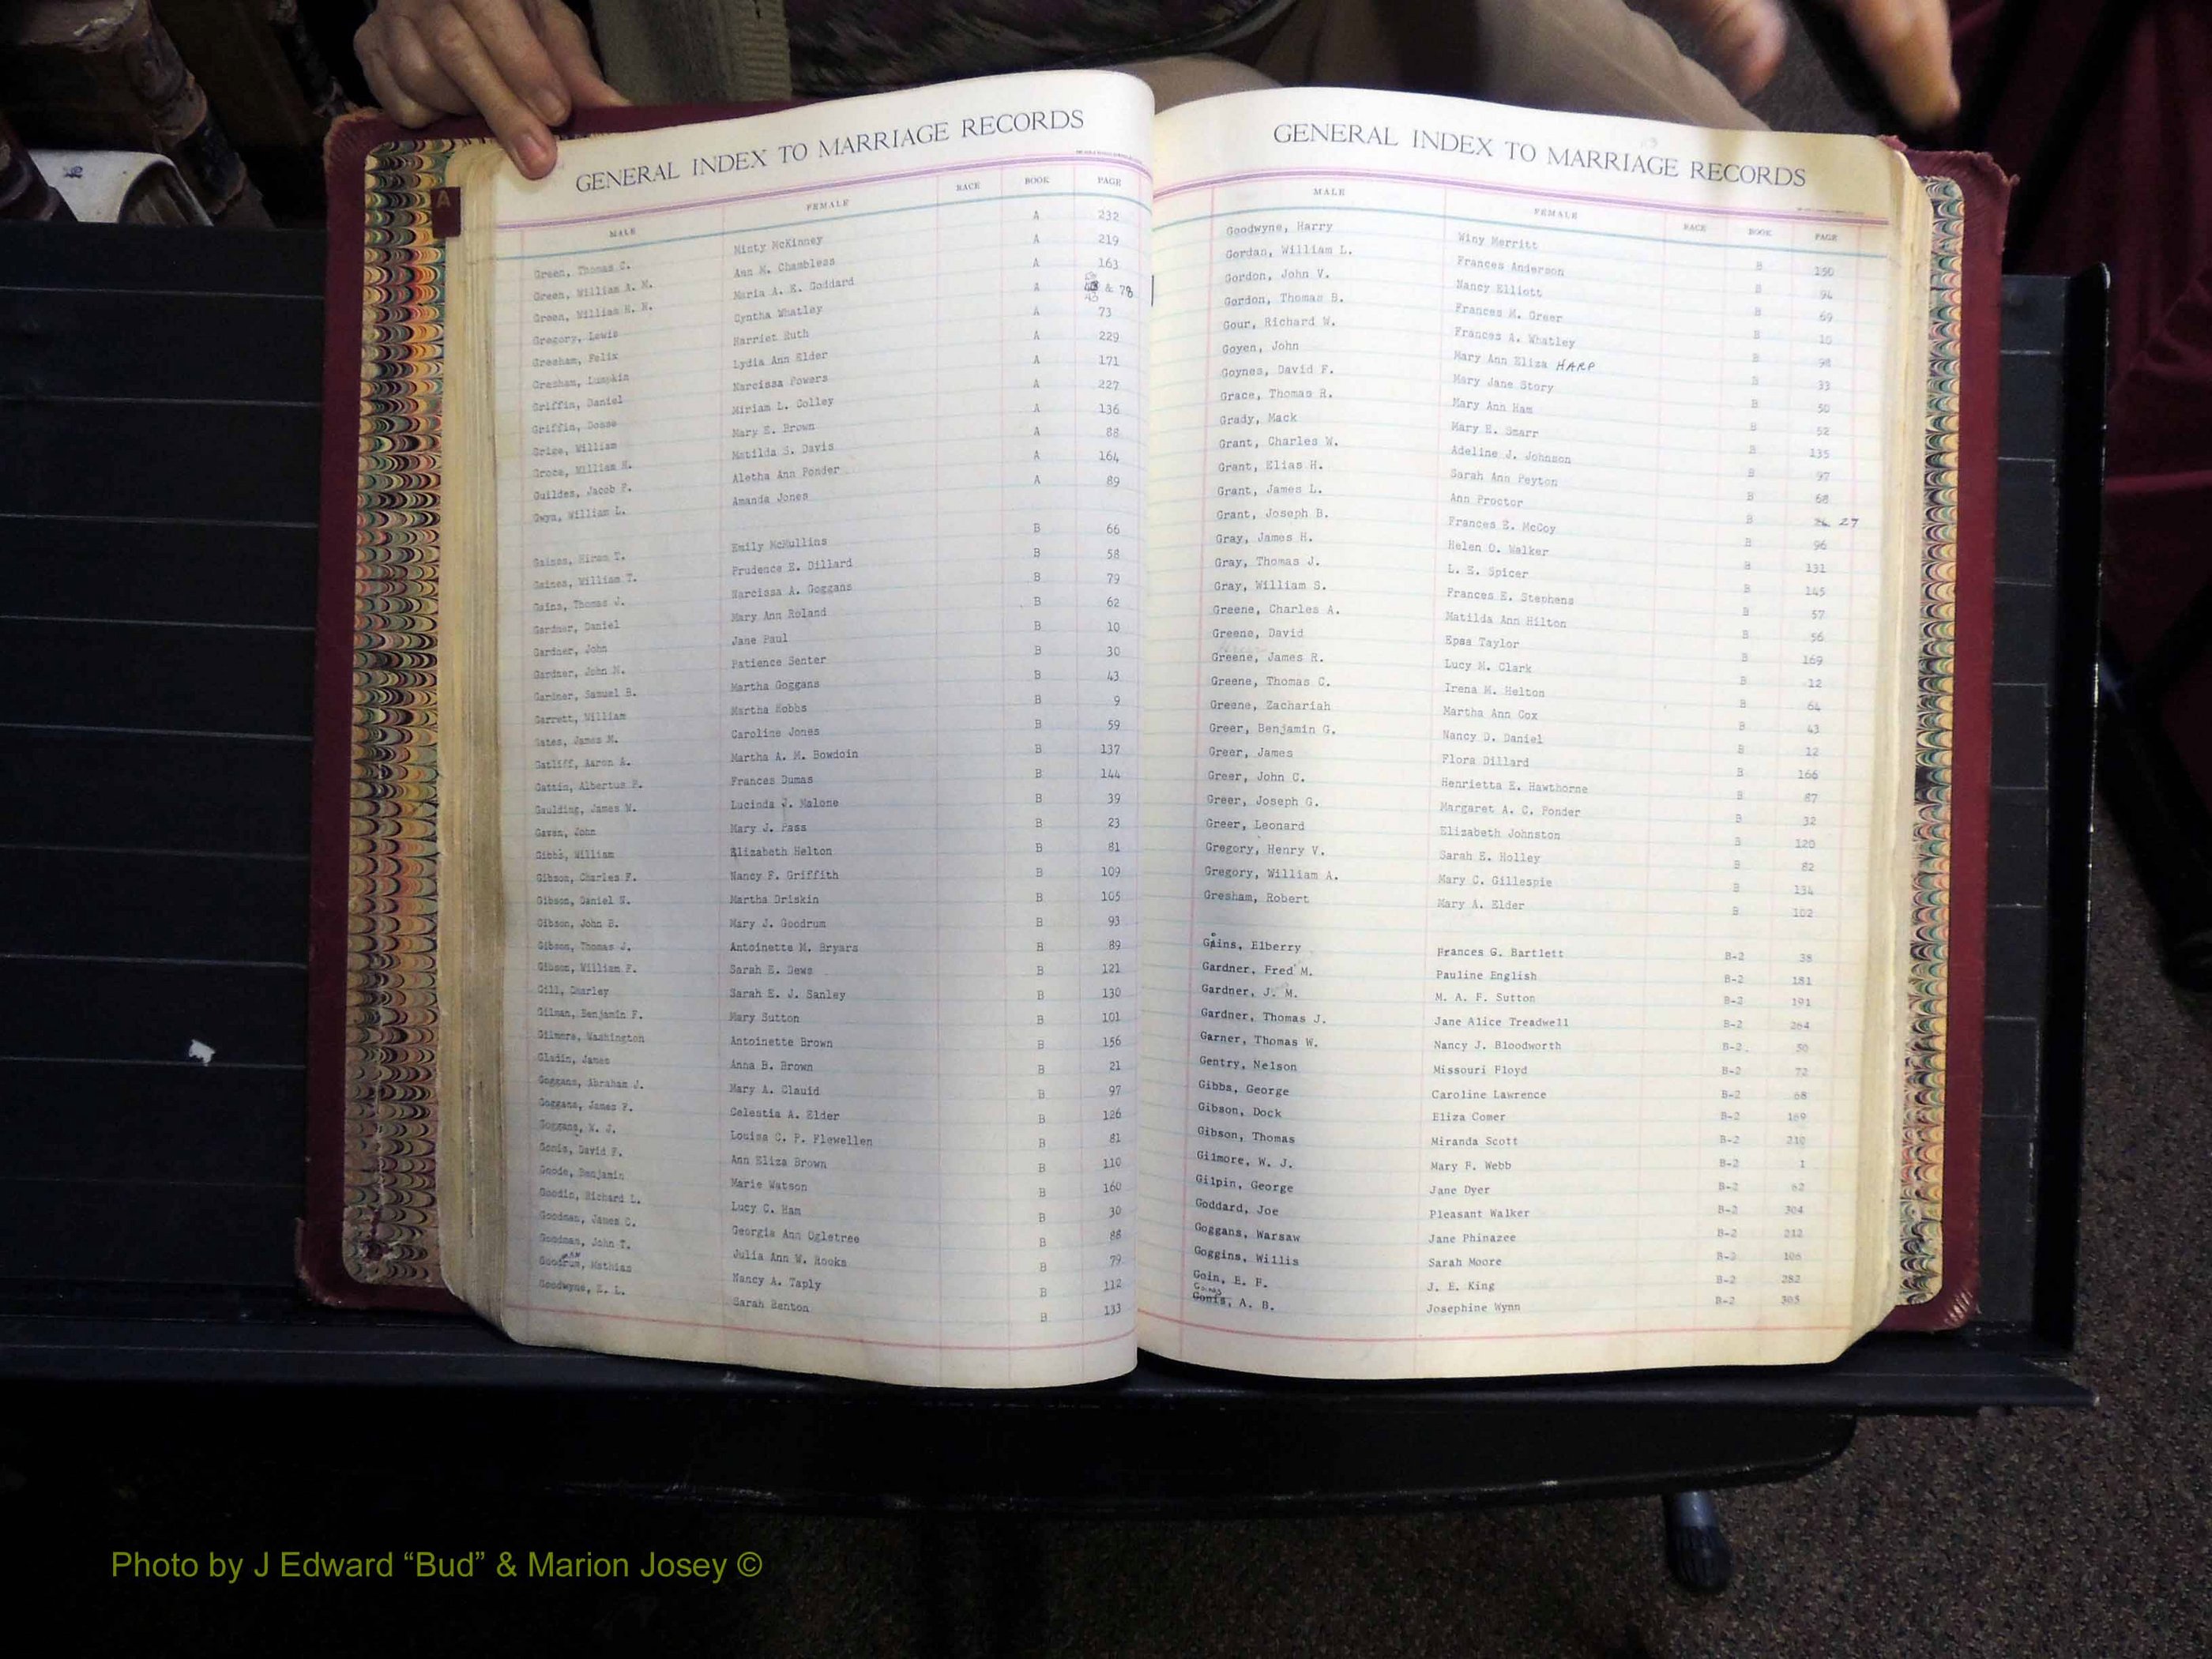 A
GENERAL INDEX TO MARRIAGE RECORDS
MALE FEMALE RACE BOOK PAGE
Green, Thomas C. Minty McKinney A 232
Green, William A. M. Ann M. Chambless A 219
Green, William H. H. Maria A. E. Goddard A 163
Gregory, Lewis Cyntha Whatley A & 78
Gresham, Felix Harriet Ruth A 73
Gresham, Lumpkin Lydia Ann Elder A 229
Griffin, Daniel Narcissa Powers A 171
Griffin, Dosse Miriam L. Colley A 227
Grice, William Mary E. Brown A 136
Groce, William H. Matilda S. Davis A 88
Guildes, Jacob P. Aletha Ann Ponder A 164
Gwyn, William L. Amanda Jones A 89
Gaines, Hiram T. Emily McMullins B 66
Gaines, William T. Prudence E. Dillard B 58
Gains, Thomas J. Narcissa A. Goggans B 79
Gardner, Daniel Mary Ann Roland B 62
Gardner, John Jane Paul B 10
Gardner, John M. Patience Senter B 30
Gardner, Samuel B. Martha Goggans B 43
Garrett, William Martha Hobbs B 9
Gates, James M. Caroline Jones B 59
Gatliff, Aaron A. Martha A. M. Bowdoin B 137
Gattin, Albertus P. Frances Dumas B 144
Gaulding, James W. Lucinda J. Malone B 39
Gavan, John Mary J. Pass B 23
Gibbs, William Elizabeth Helton B 81
Gibson, Charles F. Nancy F. Griffith B 109
Gibson, Daniel N. Martha Driskin B 105
Gibson, John B. Mary J. Goodrum B 93
Gibson, Thomas J. Antoinette M. Bryars B 89
Gibson, William F. Sarah E. Dews B 121
Gill, Charley Sarah E. J. Sanley B 130
Gilman, Benjamin F. Mary Sutton B 101
Gilmore, Washington Antoinette Brown B 156
Gladin, James Anna B. Brown B 21
Goggans, Abraham J. Mary A. Clauid B 97
Goggans, James F. Celestia A. Elder B 126
Goggans, W. J. Louisa C. P. Flewellen B 81
Gonis, David F. Ann Eliza Brown B 110
Goode, Benjamin Marie Watson B 160
Goodin, Richard L. Lucy C. Ham B 30
Goodman, James C. Georgia Ann Ogletree B 88
Goodman, John T. Julia Ann W. Rooks B 79
Goodrum, Mathias Nancy A. Taply B 112
Goodwyne, E. L. Sarah Benton B 133
GENERAL INDEX TO MARRIAGE RECORDS
MALE FEMALE RACE BOOK PAGE
Goodwyne, Harry Winy Merritt B 150
Gordan, William L. Frances Anderson B 94
Gordon, John V. Nancy Elliott B 69
Gordon, Thomas B. Frances M. Greer B 10
Gour, Richard W. Frances A. Whatley B 98
Goyen, John Mary Ann Eliza HARP B 33
Goynes, David F. Mary Jane Story B 50
Grace, Thomas R. Mary Ann Ham B 52
Grady, Mack Mary E. Smarr B 135
Grant, Charles W. Adeline J. Johnson B 97
Grant, Elias H. Sarah Ann Peyton B 68
Grant, James L. Ann Proctor B 27
Grant, Joseph B. Frances E. McCoy B 96
Gray, James H. Helen O. Walker B 131
Gray, Thomas J. L. E. Spicer B 145
Gray, William S. Frances E. Stephens B 57
Greene, Charles A. Matilda Ann Hilton B 56
Greene, David Epsa Taylor B 169
Greene, James R. Lucy M. Clark B 12
Greene, Thomas C. Irena M. Helton B 64
Greene, Zachariah Martha Ann Cox B 43
Greer, Benjamin G. Nancy D. Daniel B 12
Greer, James Flora Dillard B 166
Greer, John C. Henrietta E. Hawthorne B 87
Greer, Joseph G. Margaret A. C. Ponder B 32
Greer, Leonard Elizabeth Johnston B 120
Gregory, Henry V. Sarah E. Holley B 82
Gregory, William A. Mary C. Gillespie B 134
Gresham, Robert Mary A. Elder B 102
Gains, Elberry Frances G. Bartlett B-2 38
Gardner, Fred M. Pauline English B-2 181
Gardner, J. M. M. A. F. Sutton B-2 191
Gardner, Thomas J. Jane Alice Treadwell B-2 264
Garner, Thomas W. Nancy J. Bloodworth B-2 50
Gentry, Nelson Missouri Floyd B-2 72
Gibbs, George Caroline Lawrence B-2 68
Gibson, Dock Eliza Comer B-2 169
Gibson, Thomas Miranda Scott B-2 210
Gilmore, W. J. Mary F. Webb B-2 1
Gilpin, George Jane Dyer B-2 62
Goddard, Joe Pleasant Walker B-2 304
Goggans, Warsaw Jane Phinazee B-2 212
Goggins, Willis Sarah Moore B-2 106
Goin, E. F. J. E. King B-2 282
Gonis, A. B. Josephine Wynn B-2 305
Photo by J Edward “Bud” & Marion Josey ©